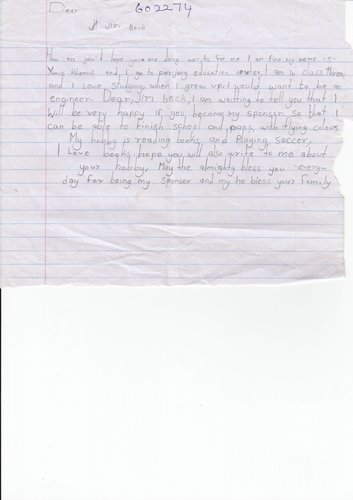 Dear 602274
Jiri Beck
How are you I hope you are doing well, As for me I am fine, my name is
Yunus Khamis and I go to education center, I am in class three,
and I Love studying, when I grow up I would want to be an
engineer. Dear, Jiri beck, I am writing to tell you that I
Will be very happy if you become my sponsor. So that I
can be able to Finish school and pass with flying colours
My hobby is reading books and Playing soccer,
I Love books hope you will also write to me about
your hobby, May the almighty bless you every
day for being my sponsor and my he bless your family